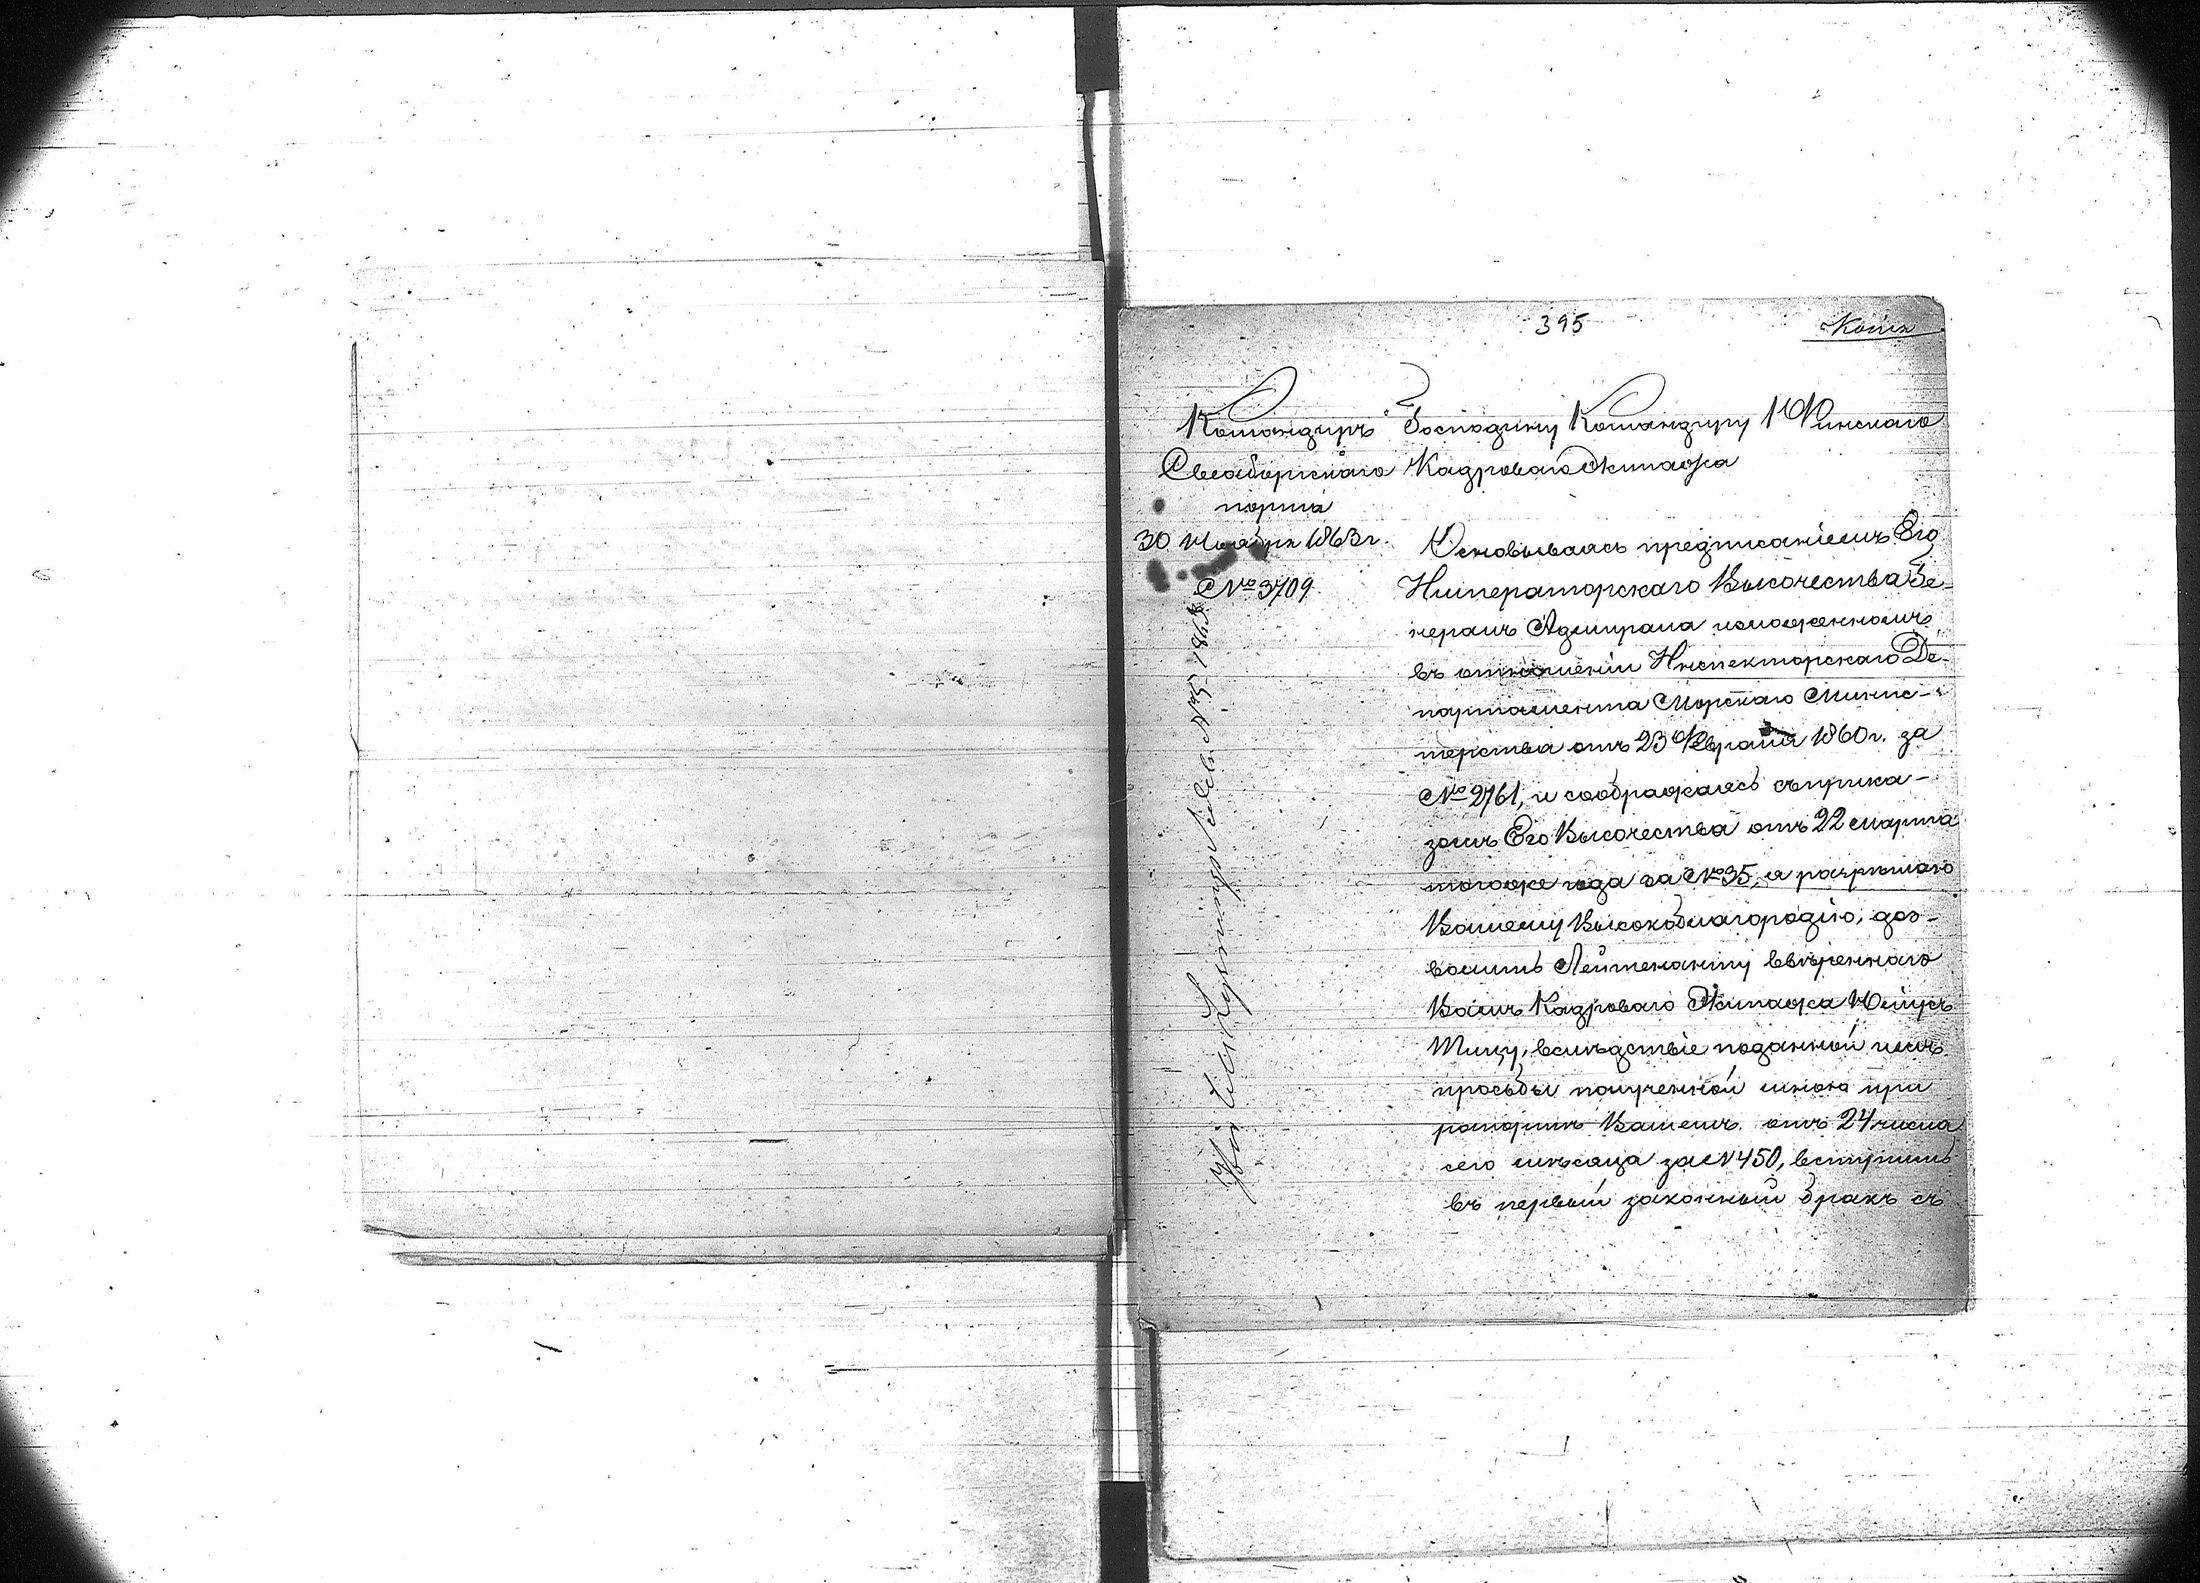 395
Копія
Командиръ
Свеаборгскаго
порта
30 Ноября 1863 г.
№ 3709.
Господину Командиру 1 Финскаго
Кадроваго Экипажа
Основываясь предписаніемъ Его
Императорскаго Высочества Ге-
нералъ Адмирала изложенномъ
въ отношеніи Инспекторскаго Де-
партамента Морскаго Минис-
терства отъ 23 Февраля 1860 г. за
№ 2761, и соображаясь съ прика-
зомъ Его Высочества отъ 22 марта
тогоже года за № 35, я разрѣшаю
Вашему Высокоблагородію, доз-
волить Лейтенанту ввѣреннаго
Вамъ Кадроваго Экипажа Юліусъ
вслѣдствіе поданной имъ
просьбы полученной мною при
рапортѣ Вашемъ отъ 24 числа
сего мѣсяца за № 450, вступить
въ первый законный бракъ съ